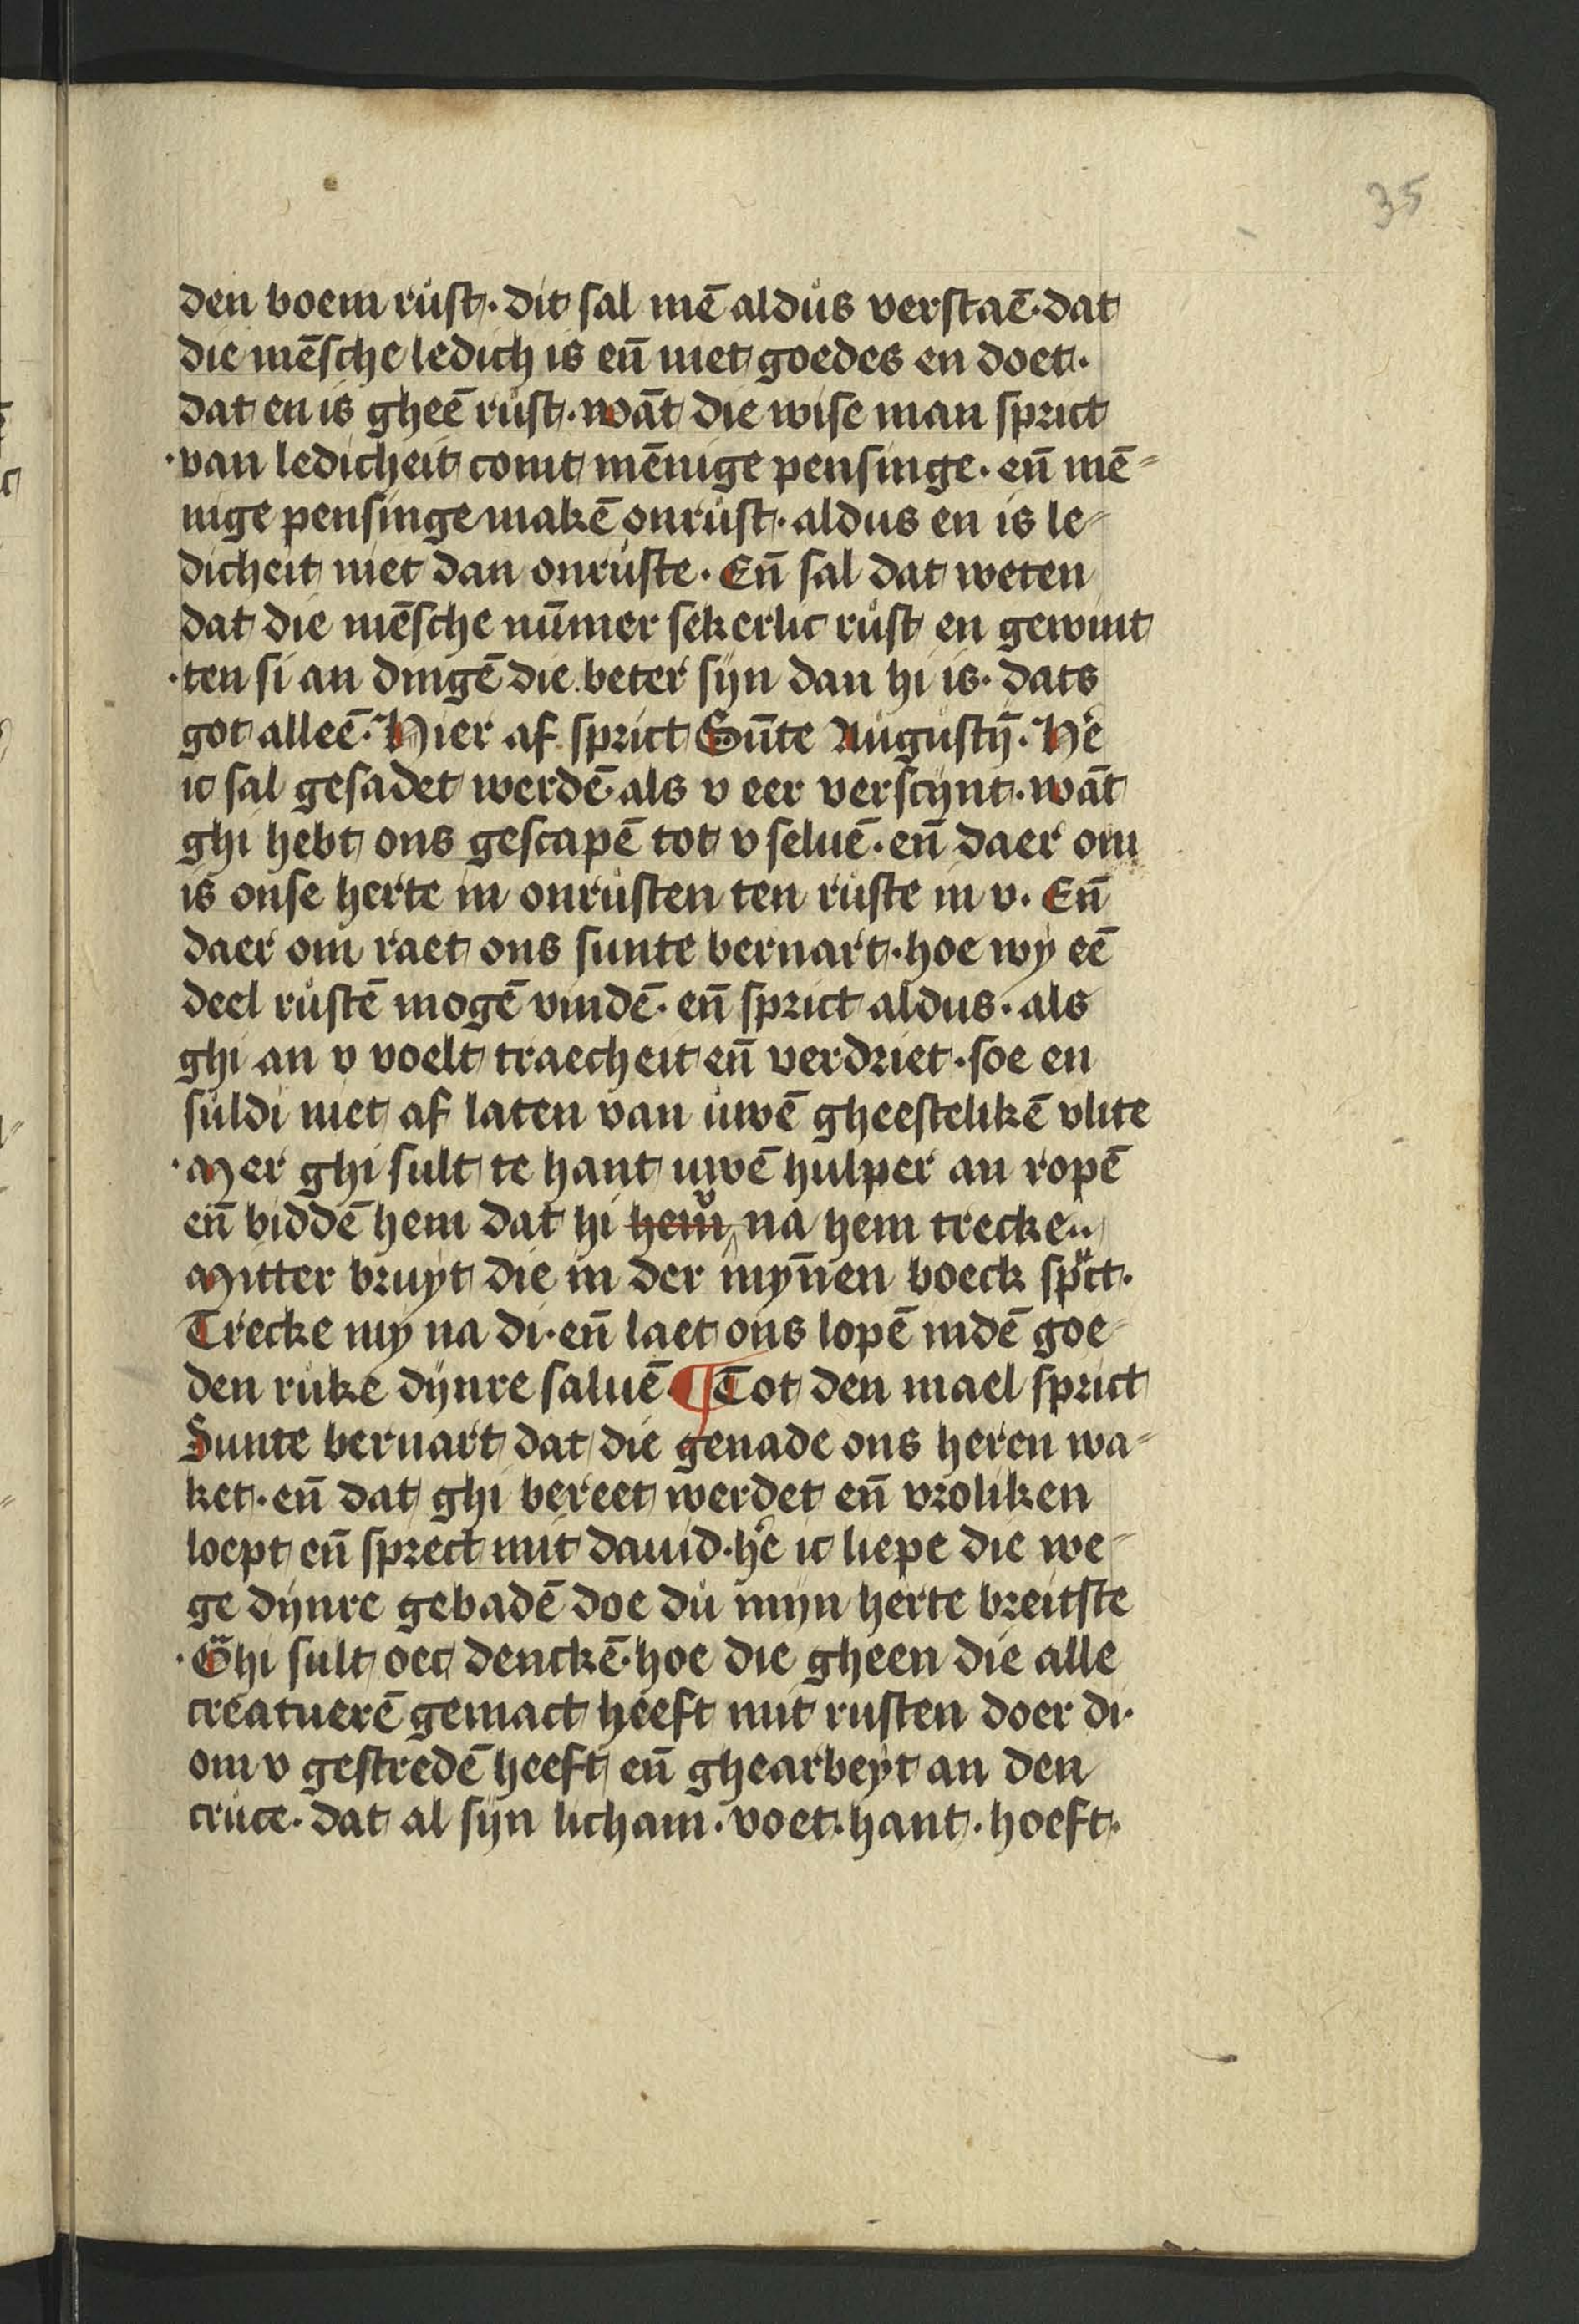 35
den boem růst. dit sal mē aldůs verstaē. dat
die mēsche ledich is eñ niet goedes en doet.
dat en is gheē růst. wāt die wise man sprict
.van ledicheit comt mēnige pensinge. eñ mē=
nige pensinge makē onrůst. aldus en is le-
dicheit niet dan onrůste. Eñ sal dat weten
dat die mēsche nūmer sekerlic růst en gewint
.ten si an dingē die beter sijn dan hi is. dats
got alleē. Hier af sprict Sūnte Augůstÿ̄. He᷑
ic sal gesadet werdē als v eer verscijnt. wāt
ghi hebt ons gescapē tot v seluē. eñ daer om
is onse herte in onrůsten ten růste in v. Eñ
daer om raet ons sunte bernart. hoe wy eē
deel růstē mogē vindē. eñ sprict aldus. als
ghi an v voelt traecheit eñ verdriet. soe en
sůldi niet af laten van ůwē gheestelikē vlite
.Mer ghi sult te hant uwē hulper an ropē
eñ biddē hem dat hi hem v na hem trecke..
Mitter bruyt die in der mȳnen boeck spͥct.
Trecke my na di. eñ laet ons lopē indē goe-
den růke dijnre saluē. ¶ Tot den mael sprict
Sunte bernart dat die genade ons heren wa=
ket. eñ dat ghi bereet werdet eñ vroliken
loept eñ sprect mit dauid. he᷑ ic liepe die we-
ge dijnre gebadē doe dů mijn herte breitste
.Ghi sult oec denckē. hoe die gheen die alle
creatuerē gemact heeft mit rusten doer di.
om v gestredē heeft eñ ghearbeyt an den
crůce. dat al sijn licham. voet. hant. hoeft.